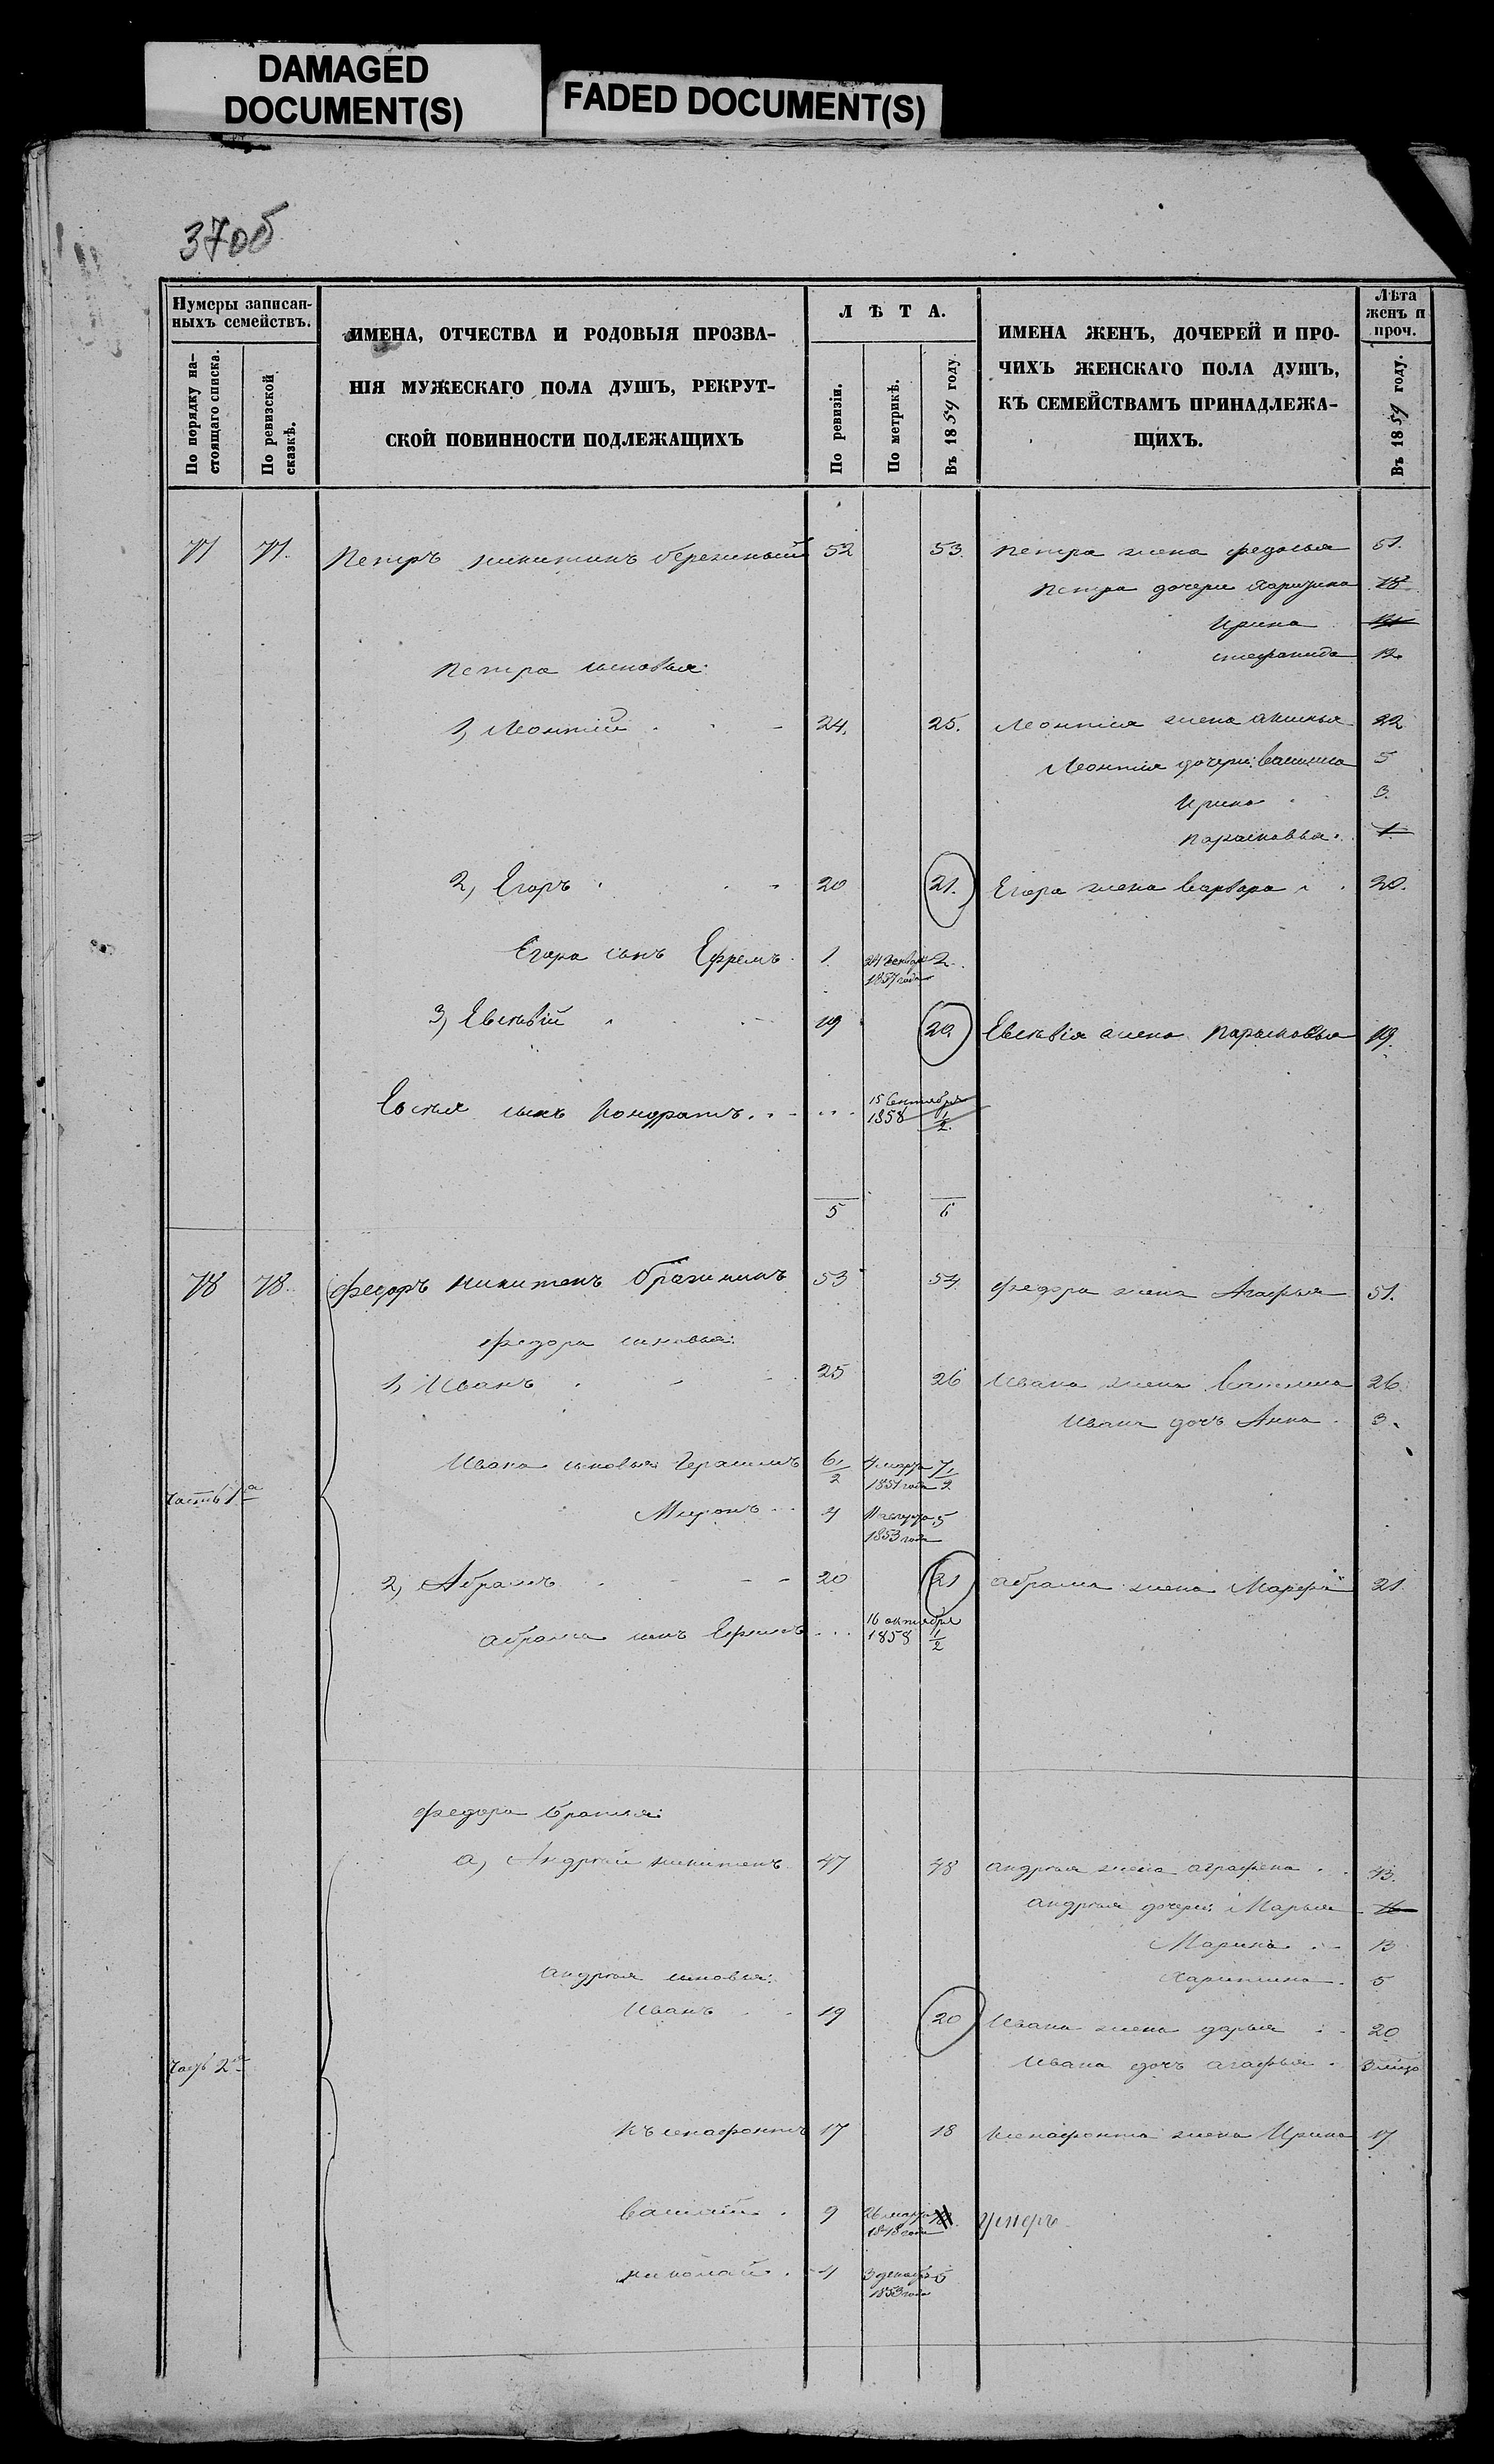 DAMAGED
DOCUMENT(S)
FADED DOCUMENT(S)
37об
Нумеры записан-
ныхъ семействъ.
По порядку на-
стоящаго списка.
По ревизской
сказкѣ.
ИМЕНА, ОТЧЕСТВА И РОДОВЫЯ ПРОЗВА-
НІЯ МУЖЕСКАГО ПОЛА ДУШЪ, РЕКРУТ-
СКОЙ ПОВИННОСТИ ПОДЛЕЖАЩИХЪ
ЛѢТА.
По ревизіи.
По метрикѣ.
Въ 1859 году.
ИМЕНА ЖЕНЪ, ДОЧЕРЕЙ И ПРО-
ЧИХЪ ЖЕНСКАГО ПОЛА ДУШЪ,
КЪ СЕМЕЙСТВАМЪ ПРИНАДЛЕЖА-
ЩИХЪ.
Лѣта
женъ и
проч.
Въ 1859 году.
Петръ никитинъ 52 53. петра жена федосья 51.
петра дочери 18
Ирина
стефанида 12
петра сыновья:
1, Леонтій 24. 25. Леонтія жена аксинья 22
Леонтія дочери: 5
Ирина 3.
парасковья 1
2, Егоръ 20 21. Егора жена варвара 20.
Егора сынъ Ефремъ 1 2
1857 года
3, Евсѣвій 19 20. Евсѣвія жена парасковья 19.
сынъ Кондратъ 15 Сентября
1858 1/2
5 6
78 78. Федоръ никитинъ 53 54 Федора жена Агафья 51.
федора сыновья:
1, Иванъ 25 26 Ивана жена 26
Ивана дочь Анна 3
Ивана сыновья Герасимъ 6 1/2 7 1/2
1851 года
часть 1я
Миронъ 4 5
1853 года
2, Абрамъ 20 21 абрама жена Марфа 21
абрама сынъ Ефимъ 16 октября
1858 1/2
Федора братья:
а, Андрей никитинъ 47 48 андрея жена аграфена 43.
андрея дочери: Марья 16
Марина 13
андрея сыновья: Харитина 5
Иванъ 19 20 Ивана жена дарья 20
часть 2я
Ивана дочь агафья
17 18 ксенафонта жена Ирина 17
василій 9 26 марта умеръ
1848 года
николай 4 3 декабря 5
1853 года